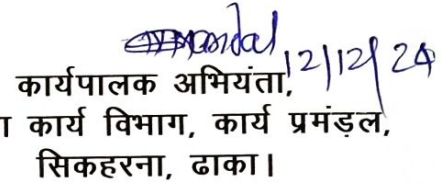 12/12/24
कार्यपालक अभियंता,
कार्य विभाग, कार्य प्रमंड़ल,
सिकहरना, ढाका।